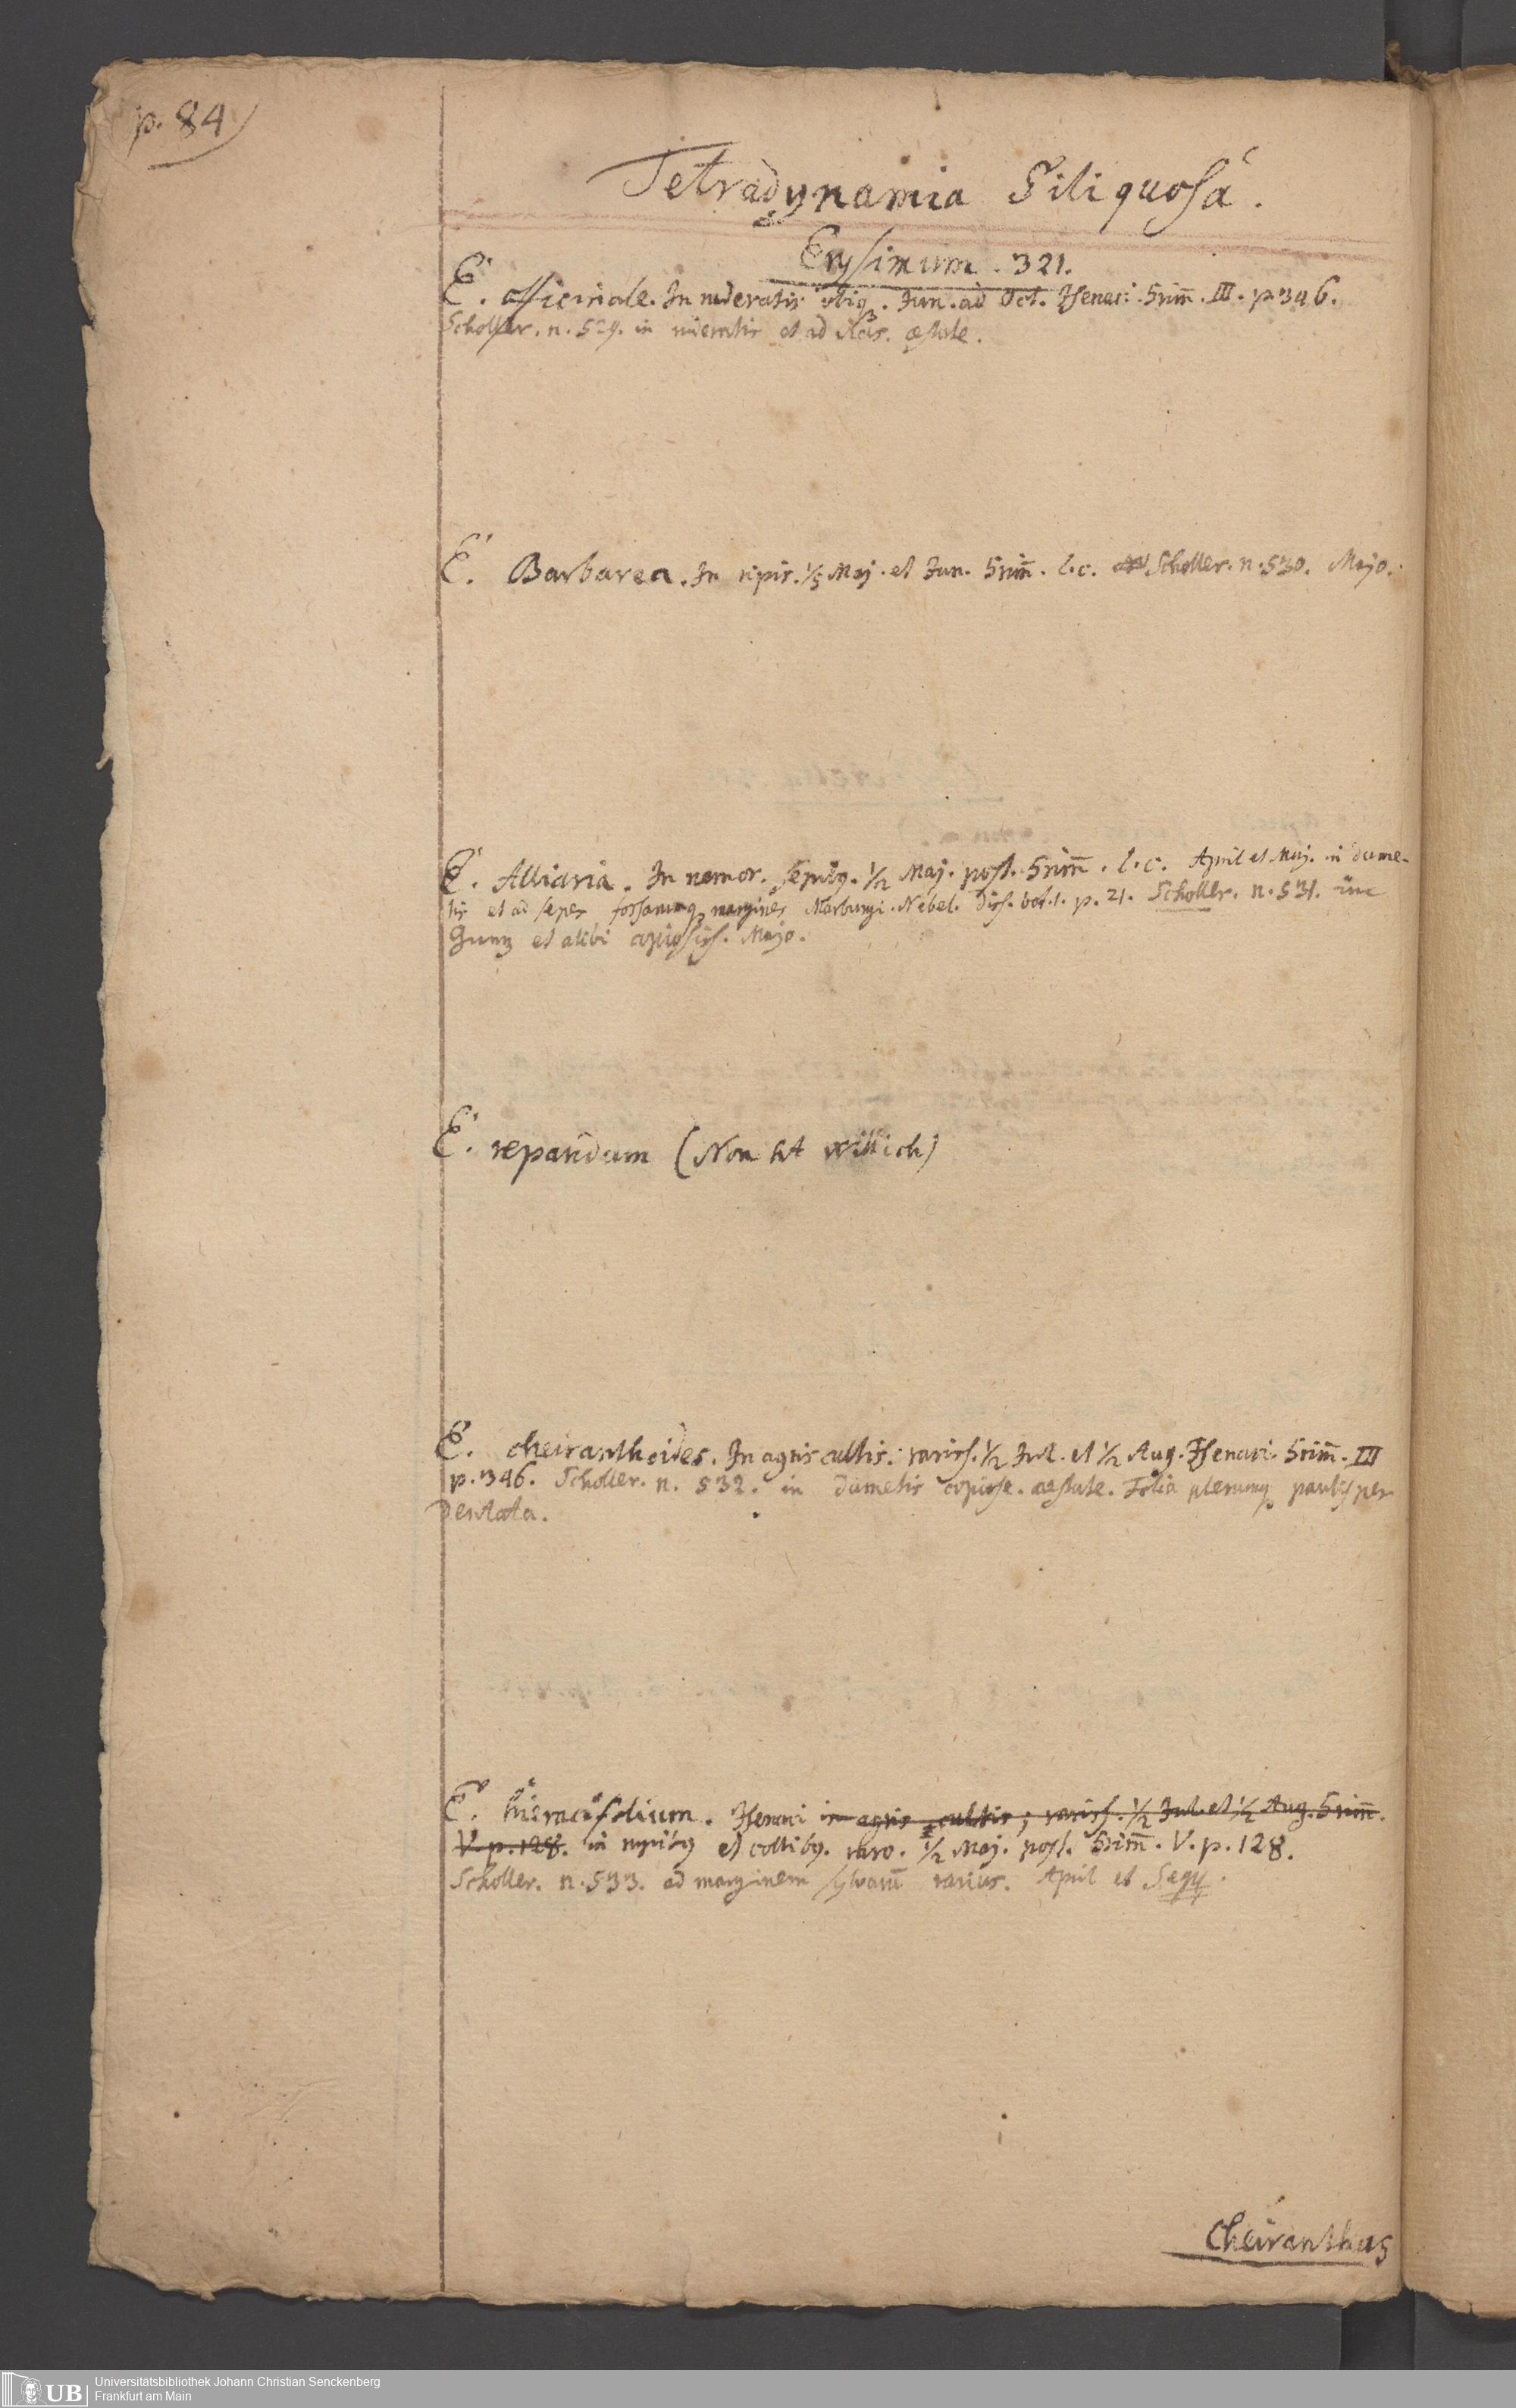 p. 84
Tetradynamia Siliquosa.
Erysimum. 321.
E. officinale. In ruderatis ubiq3. Jun. ad Oct. Isenaci. Grim̄. III. p. 346.
Scholler. n. 529. in ruderatis et ad vias. æstate.
E. Barbarea. In ripis. 1/3 Maj. et Jun. Grim̄. l. c. Scholler. n. 530. Majo.
E. Alliaria. In nemor. sepibq. 1/2 Maj. post. Grim̄. l. c. April et Maj. in dume-
tis et ad sepes fossarumq marginés Marburgi. Nebel. Diss. bot. 1. p. 21. Scholler. n. 531. hinc
et alibi copiosiss. Majo.
E. repandum (Non ht Willich)
E. cheiranthoides. In agris cultis. rariss. 1/2 Jul. et 1/2 Aug. Isenaci. Grim̄. III
p. 346. Scholler. n. 532. in dumetis copiose. aestate. Folia plerumq paulisper
dentata.
E. hieracifolium. Isenaci in agris cultis; rariss. 1/2 Jul. et 1/2 Aug. Grim̄.
V. p. 128. in rupibq et collibq. raro. 1/2 Maj. post. Grim̄. V. p. 128.
Scholler. n. 533. ad marginem sylvarū rarius. April et Seqq.
Cheiranthus
UB
Universitätsbibliothek Johann Christian Senckenberg
Frankfurt am Main